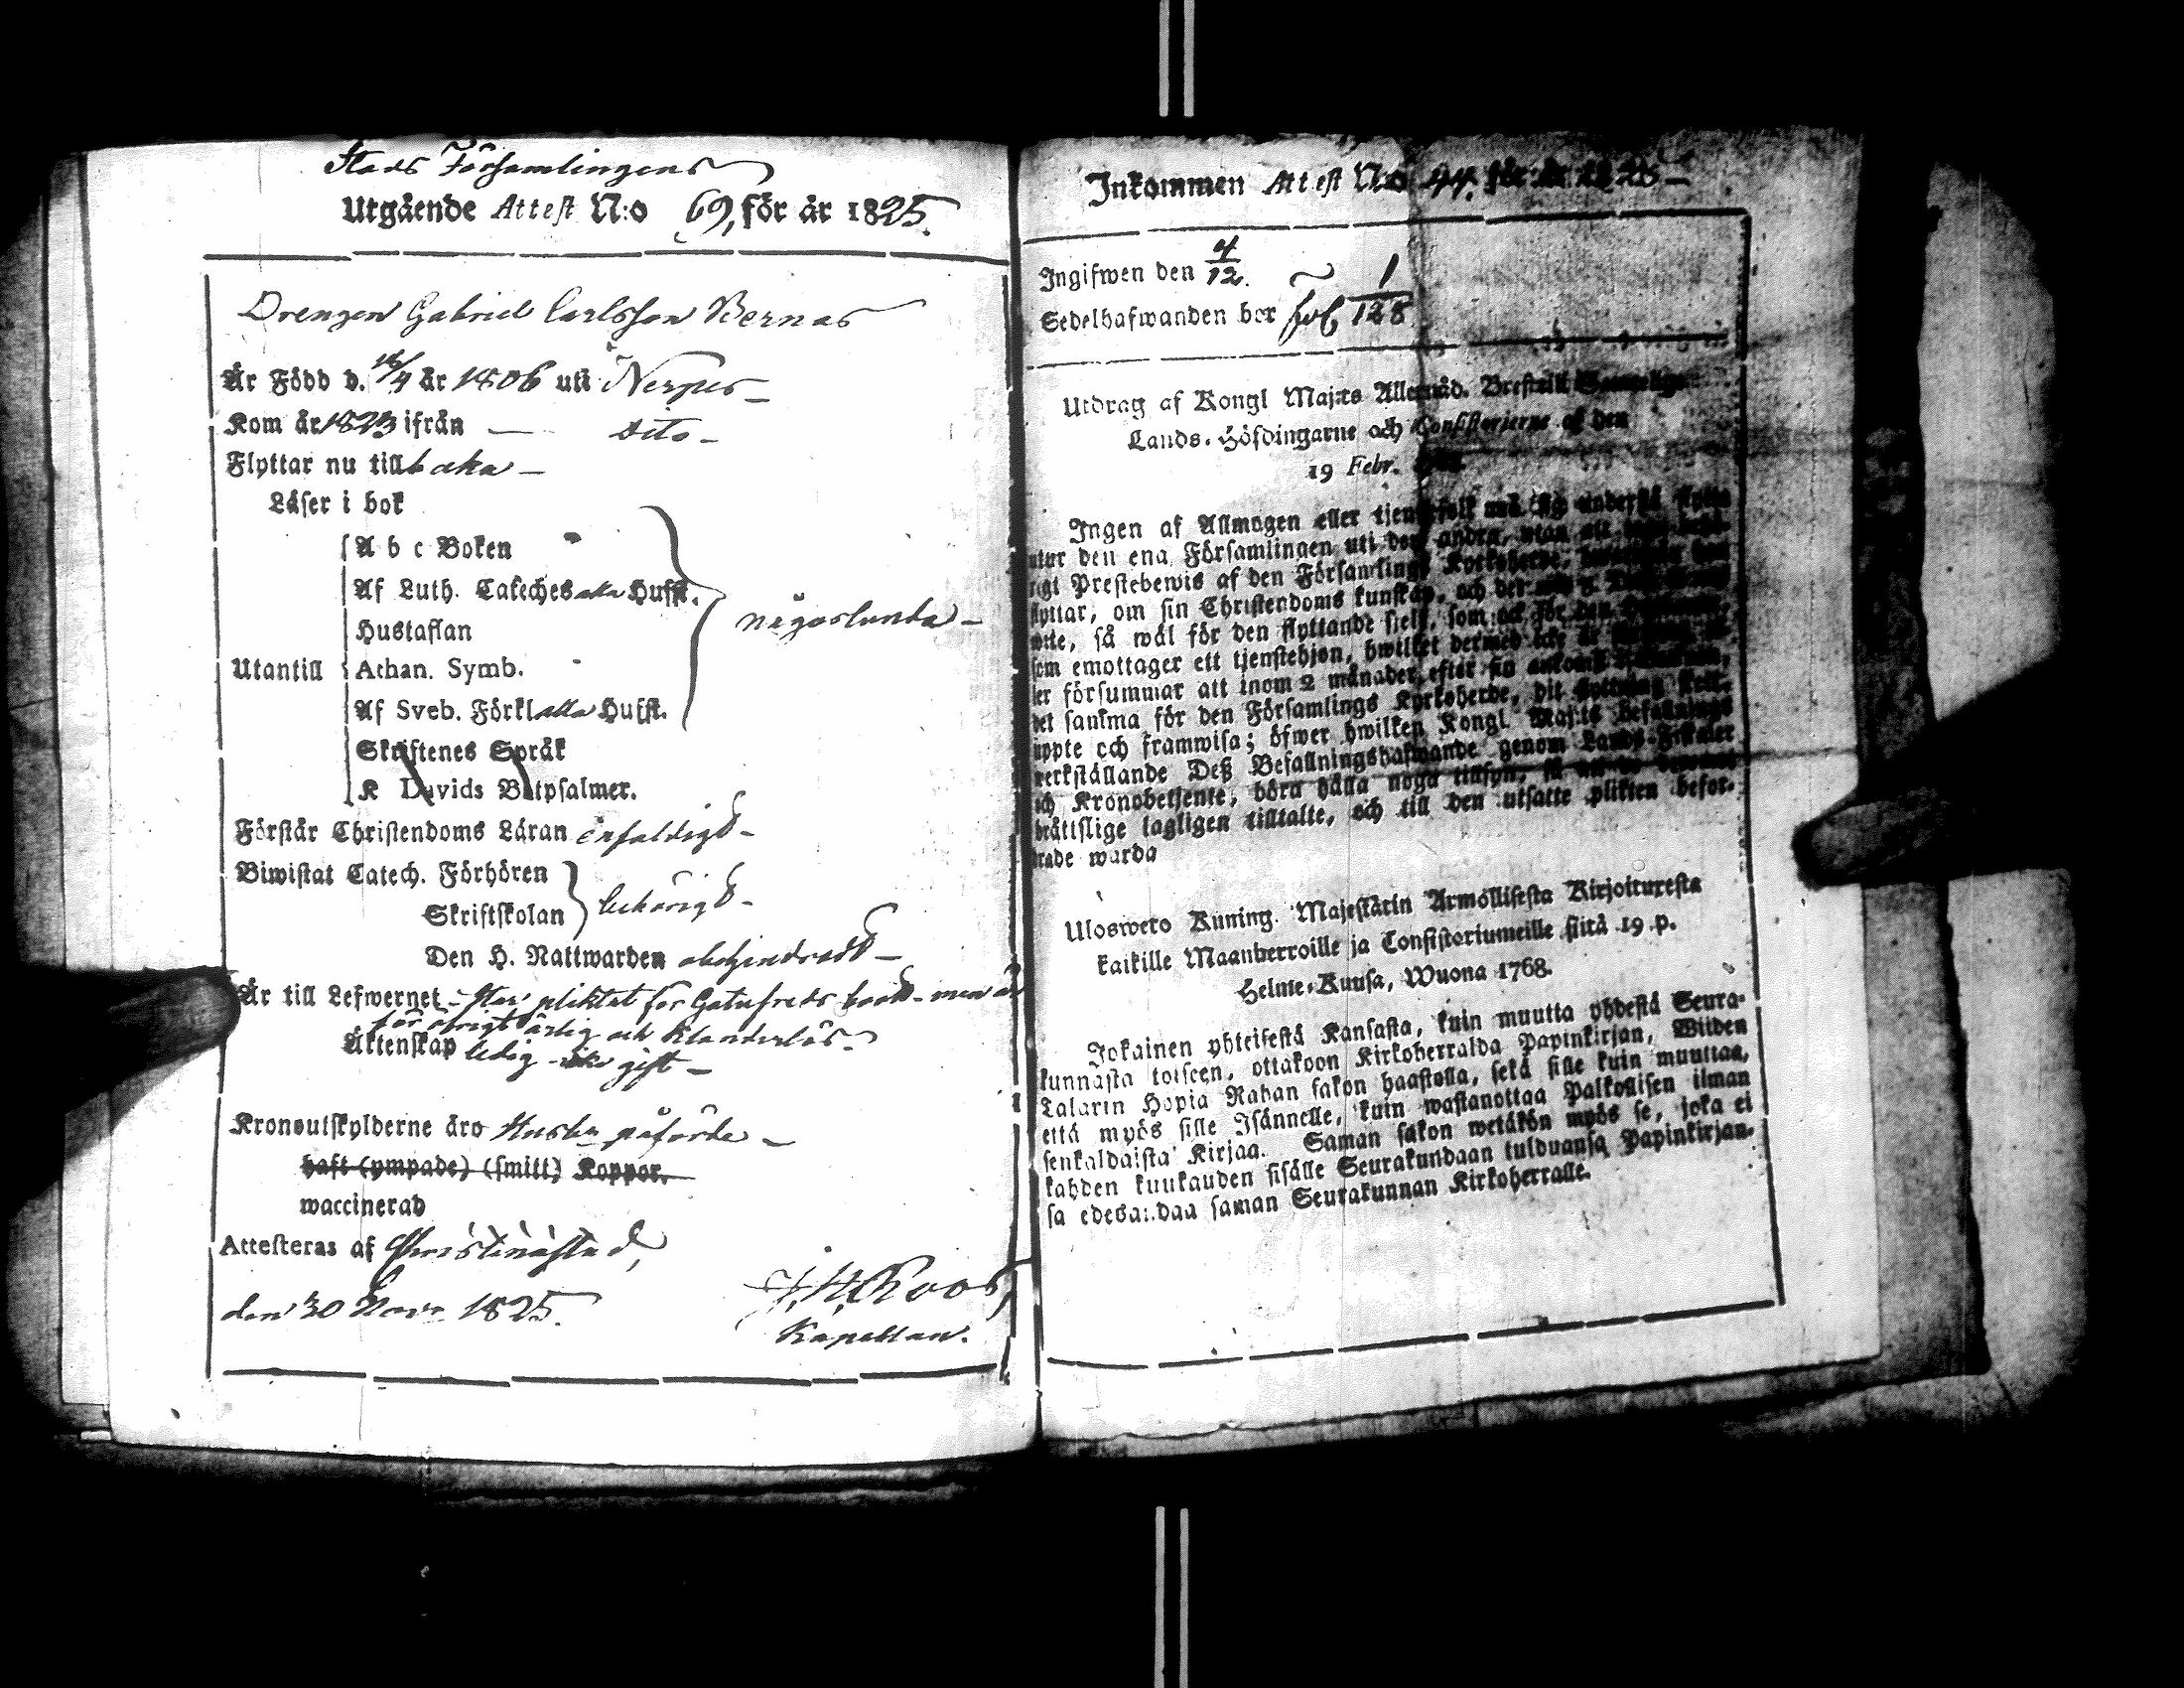 Stads Församlingens
Utgående Attest N:o 69, för år 1825.
Drengen Gabriel Carlsson Bernas
Är Född d. /4 år 1806 uti Nerpes
Kom år 1823 ifrån — dito —
Flyttar nu tillbaka —
Läser i bok
A b c Boken
Af Luth. Cateches alla Hufst.
Hustaflan
någorlunda —
Utantill Athan. Symb.
Af Sveb. Förkl alla Hufst.
Skriftenes Språk
K Davids Botpsalmer.
Förstår Christendoms Läran enfaldigt —
Biwistat Catech. Förhören
Skriftskolan
behörigt —
Den H. Nattwarden obehindradt —
Är till Lefwernet – Har pliktat för Gatufreds brott – men är
för öfrigt ärlig och klanderlös –
Äktenskap ledig – icke gift —
Kronoutskylderne äro Husbn påförde —
haft (ympade) (smitt) Koppor.
waccinerad
Attesteras af Christinæstad,
den 30 Novr 1825.
J. H. Roos,
Kapellan.
Inkommen Attest N:o 44. för år 1825 —
Ingifwen den 4/12.
Sedelhafwanden bor fol 1/128
Utdrag af Kongl Maj:ts Allernåd. Bref till
Lands-Höfdingarne och Consistorierne af den
19 Febr.
Ingen af Allmogen eller tjenstefolk må sig understå flytta
utur den ena Församlingen uti den andra, utan att
Prestebewis af den Församlings Kyrkoherde,
flyttar, om sin Christendoms kunskap, och
så wäl för den flyttande sielf, som ock för den
som emottager ett tjenstehjon, hwilket dermed icke är
ler försummar att inom 2 månader, efter sin ankomst
det samma för den Församlings Kyrkoherde, dit
uppte och framwisa; öfwer hwilken Kongl. Maj:ts Befallnings
werkställande Deß Befallningshafwande genom Lands-Fiskaler
och Kronobetjente, böra hålla noga tillsyn,
brättslige lagligen tilltalte, och till den utsatte plikten befor-
rade warda
Uloswero Kuning. Majestätin Armollisesta Kirjoituxesta
kaikille Maanherroille ja Consistoriumeille siitä 19 p.
Helme-Kuusa, Wuona 1768.
Jokainen yhteisestä Kansasta, kuin muutta yhdestä Seura-
kunnasta toiseen, ottakoon Kirkoherralda Papinkirjan, Wiiden
Talarin Hopia Rahan sakon haastolla, sekä sille kuin muuttaa,
että myös sille Isännelle, kuin wastanottaa Palkollisen ilman
senkaldaista Kirjaa. Saman sakon wetäkön myös se, joka ei
kahden kuukauden sisälle Seurakundaan tulduansa Papinkirjan-
sa edesandaa saman Seurakunnan Kirkoherralle.